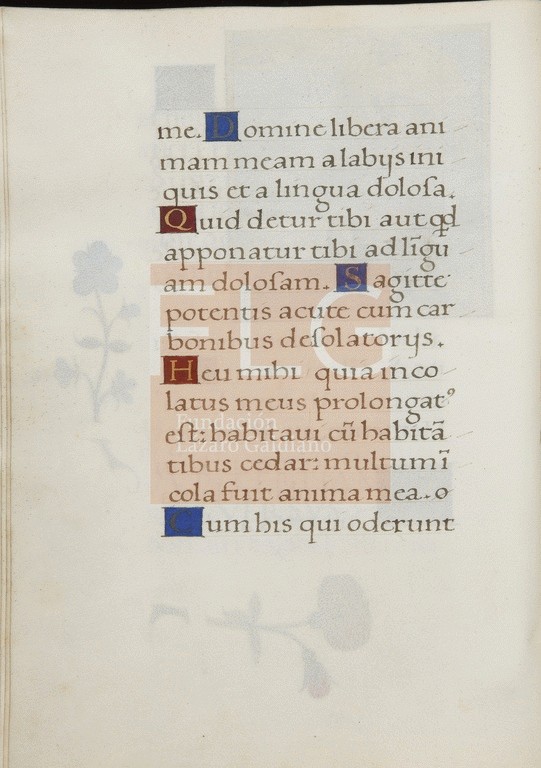 me. Domine libera ani
mam meam a labijs ini
quis et a lingua dolosa.
Quid detur tibi aut qd
apponatur tibi ad līgu
am dolosam. Sagitte
potentis acute cum car
bonibus desolatorijs.
Heu mihi quia inco
latus meus prolongatꝰ
est: habitaui cū habitā
tibus cedar: multum ī
cola fuit anima mea. o
Cum his qui oderunt
FLG
Fundación
Lázaro Galdiano